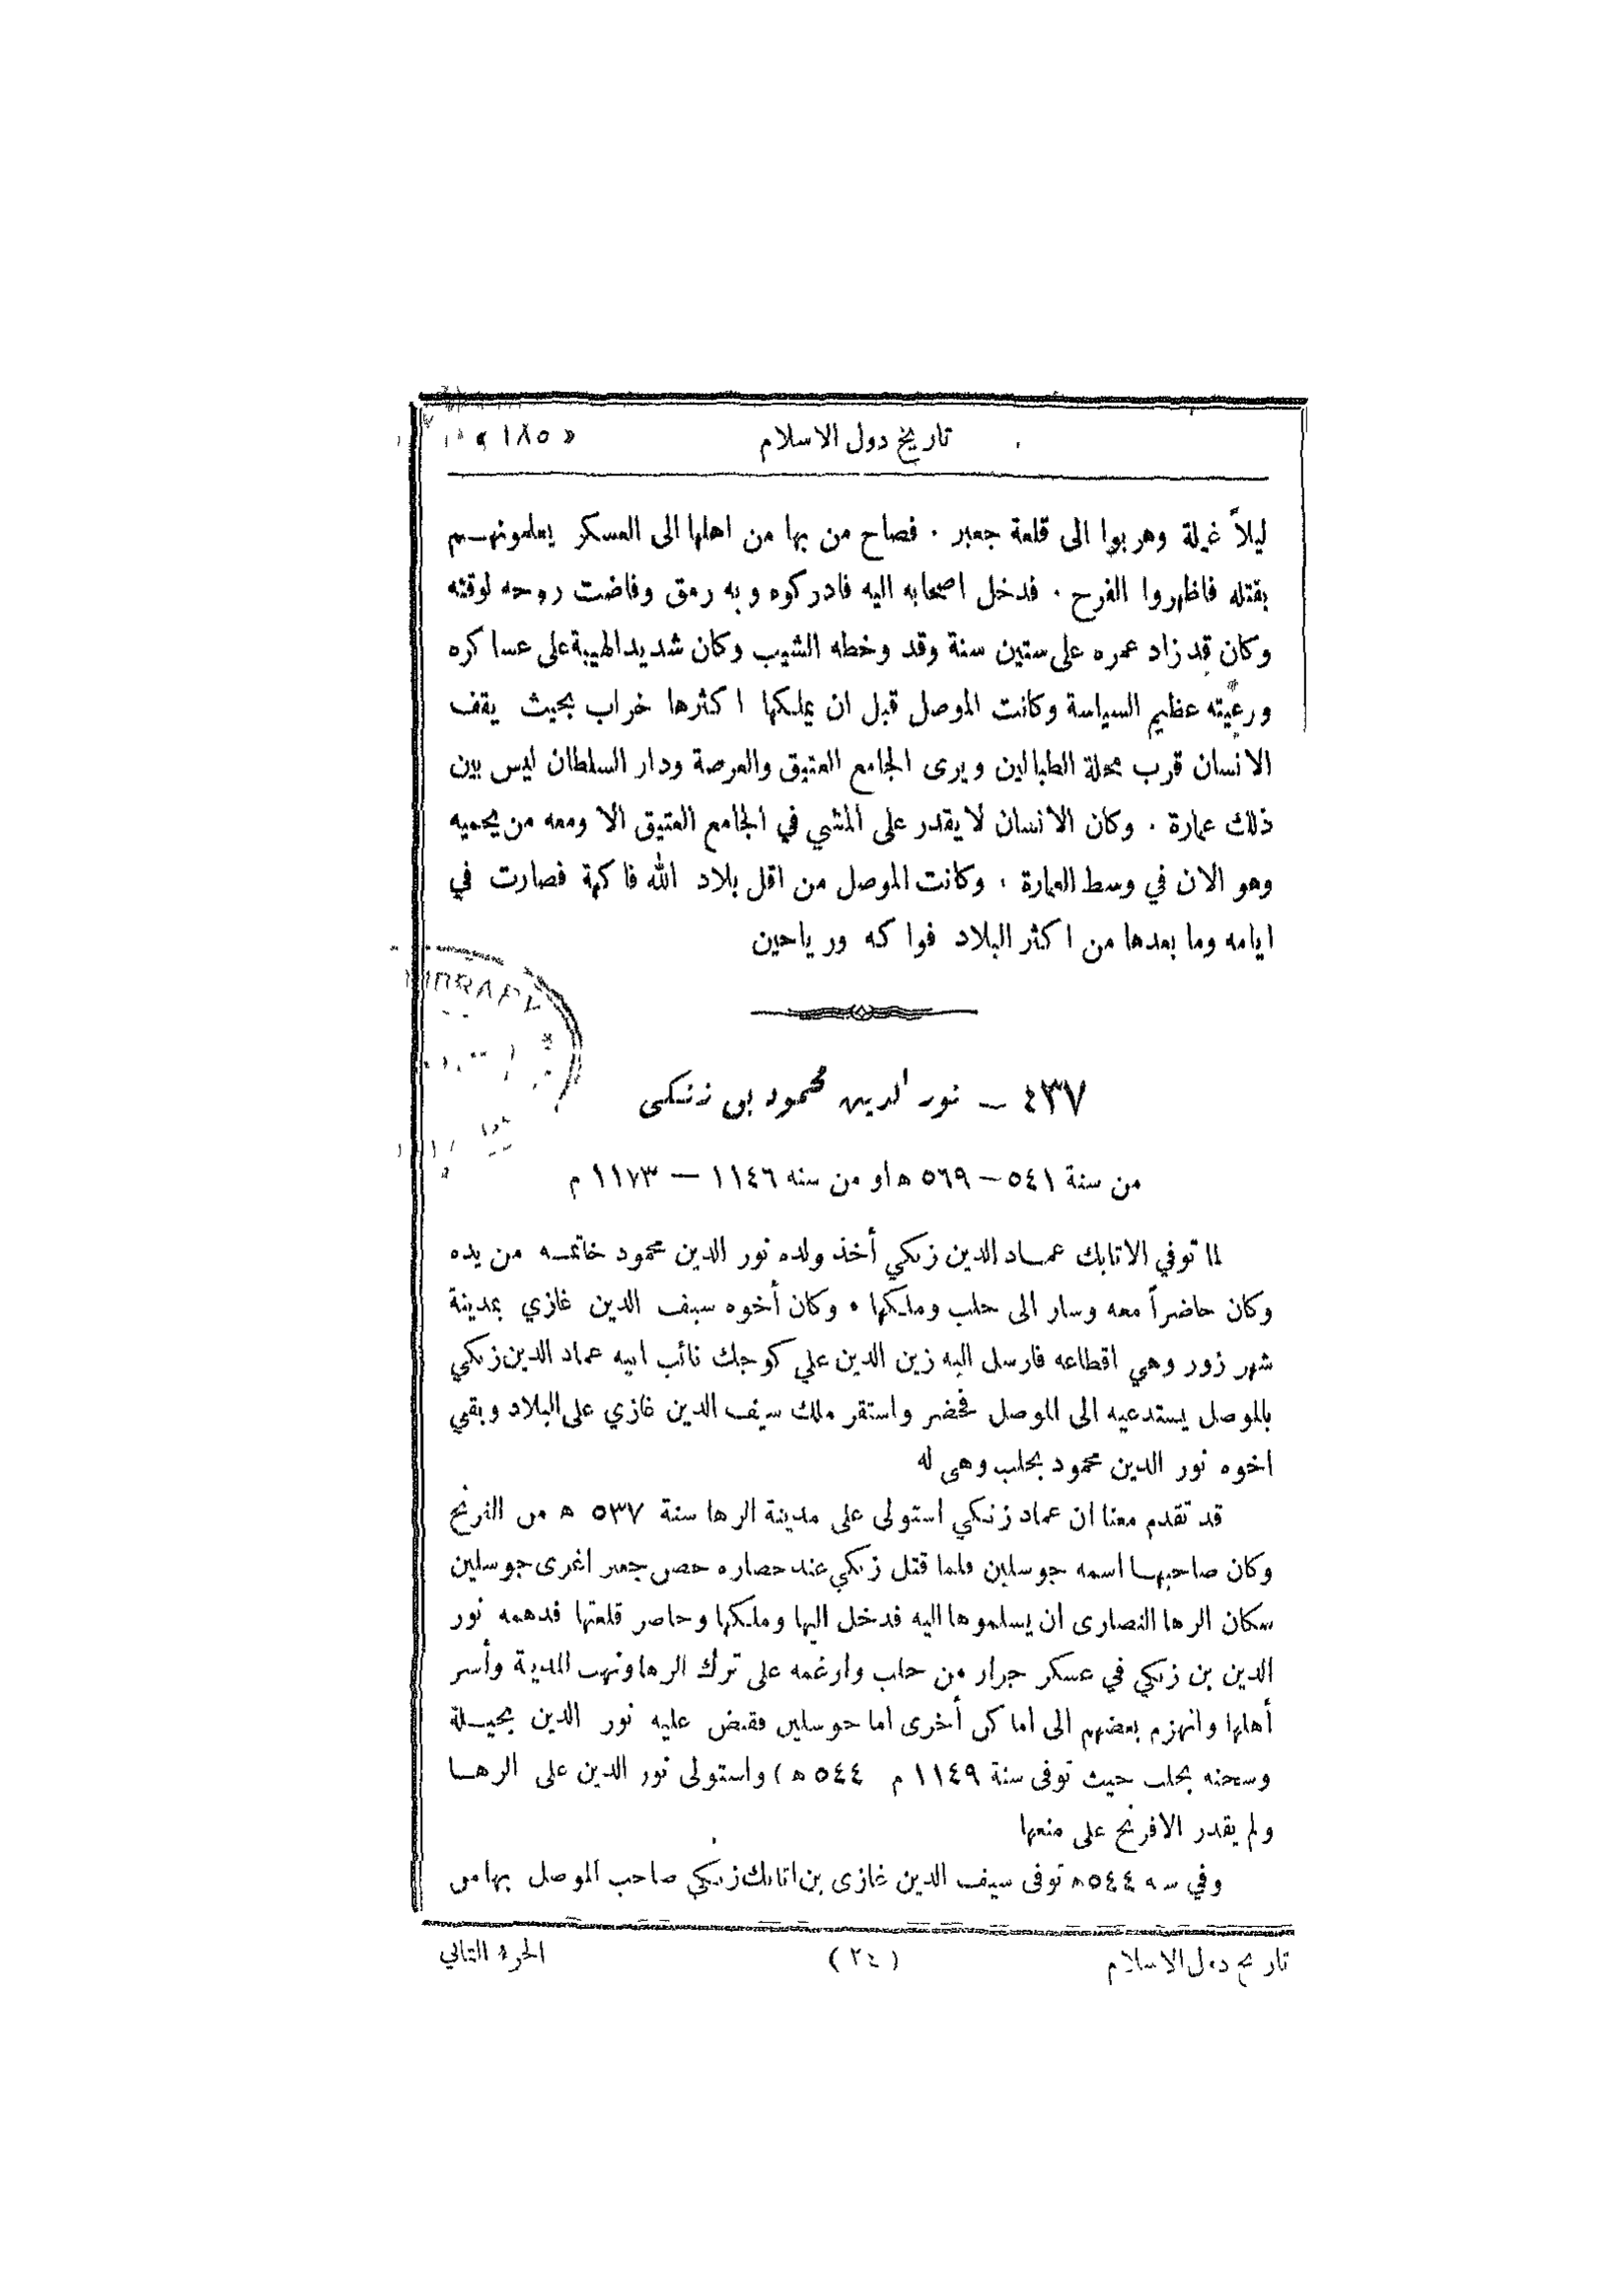 تاريخ دول الاسلام « ١٨٥ »
ليلاً غيلة وهربوا الى قلعة جعبر . فصاح من بها من اهلها الى العسكر يعلمونهـم
بقتله فاظهروا الفرح . فدخل اصحابه اليه فادركوه وبه رمق وفاضت روحه لوقته
وكان قد زاد عمره على ستين سنة وقد وخطه الشيب وكان شديد الهيبة على عساكره
ورعيته عظيم السياسة وكانت الموصل قبل ان يملكها اكثرها خراب بحيث يقف
الانسان قرب محلة الطبالين ويرى الجامع العتيق والعرصة ودار السلطان ليس بين
ذلك عمارة . وكان الانسان لا يقدر على المشي في الجامع العتيق الا ومعه من يحميه
وهو الان في وسط العمارة . وكانت الموصل من اقل بلاد الله فاكهة فصارت في
ايامه وما بعدها من اكثر البلاد فواكه ورياحين
LIBRARY
٤٣٧ – نور الدين محمود بن زنكى
من سنة ٥٤١ – ٥٦٩ ه او من سنه ١١٤٦ – ١١٧٣ م
لما توفي الاتابك عمـاد الدين زنكي أخذ ولده نور الدين محمود خاتمـه من يده
وكان حاضراً معه وسار الى حلب وملكها . وكان أخوه سيف الدين غازي بمدينة
شهر زور وهي اقطاعه فارسل اليه زين الدين علي كوجك نائب ابيه عماد الدين زنكي
بالموصل يستدعيه الى الموصل فحضر واستقر ملك سيف الدين غازي على البلاد وبقي
اخوه نور الدين محمود بحلب وهى له
قد تقدم معنا ان عماد زنكي استولى على مدينة الرها سنة ٥٣٧ ه من الفرنج
وكان صاحبهـا اسمه جوسلين فلما قتل زنكي عند حصاره حصن جعبر اغرى جوسلين
سكان الرها النصارى ان يسلموها اليه فدخل اليها وملكها وحاصر قلعتها فدهمه نور
الدين بن زنكي في عسكر جرار من حلب وارغمه على ترك الرها ونهب المدينة وأسر
أهلها وانهزم بعضهم الى اماكن أخرى اما جوسلين فقبض عليه نور الدين بحيـلة
وسجنه بحلب حيث توفى سنة ١١٤٩ م ٥٤٤ ه) واستولى نور الدين على الرهـا
ولم يقدر الافرنج على منعها
وفي سنه ٥٤٤ه توفى سيف الدين غازى بن اتابك زنكي صاحب الموصل بها من
تاريخ دول الاسلام (٢٤) الجزء الثاني